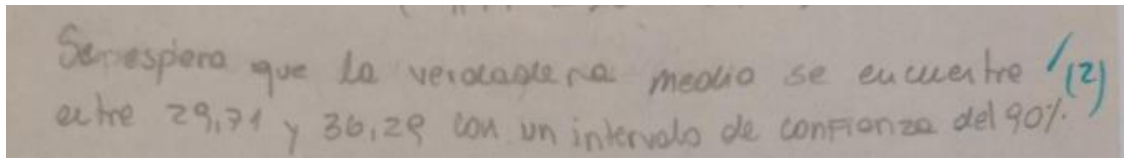 Se espera que la verdadera media se encuentre /(2)
entre 29,71 y 36,29 con un intervalo de confianza del 90%.